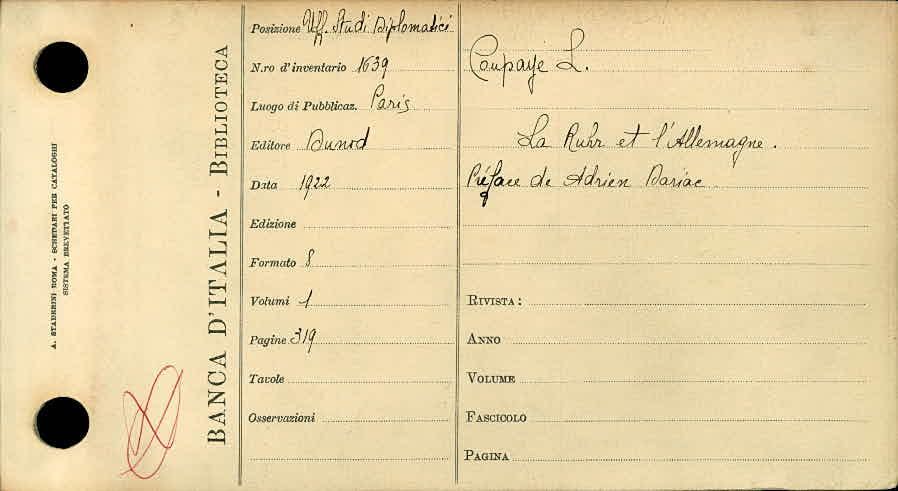 A. STADERINI ROMA - SCHEDARI PER CATALOGHI
SISTEMA BREVETTATO
BANCA D'ITALIA - BIBLIOTECA
Posizione Uff. Studi Diplomatici
N.ro d'inventario 1639
Luogo di Pubblicaz. Paris
Editore Dunod
Data 1922
Edizione
Formato 8
Volumi 1
Pagine 319
Tavole
Osservazioni
Coupaye L.
La Ruhr et l'Allemagne.
Préface de Adrien Dariac
RIVISTA:
ANNO
VOLUME
FASCICOLO
PAGINA